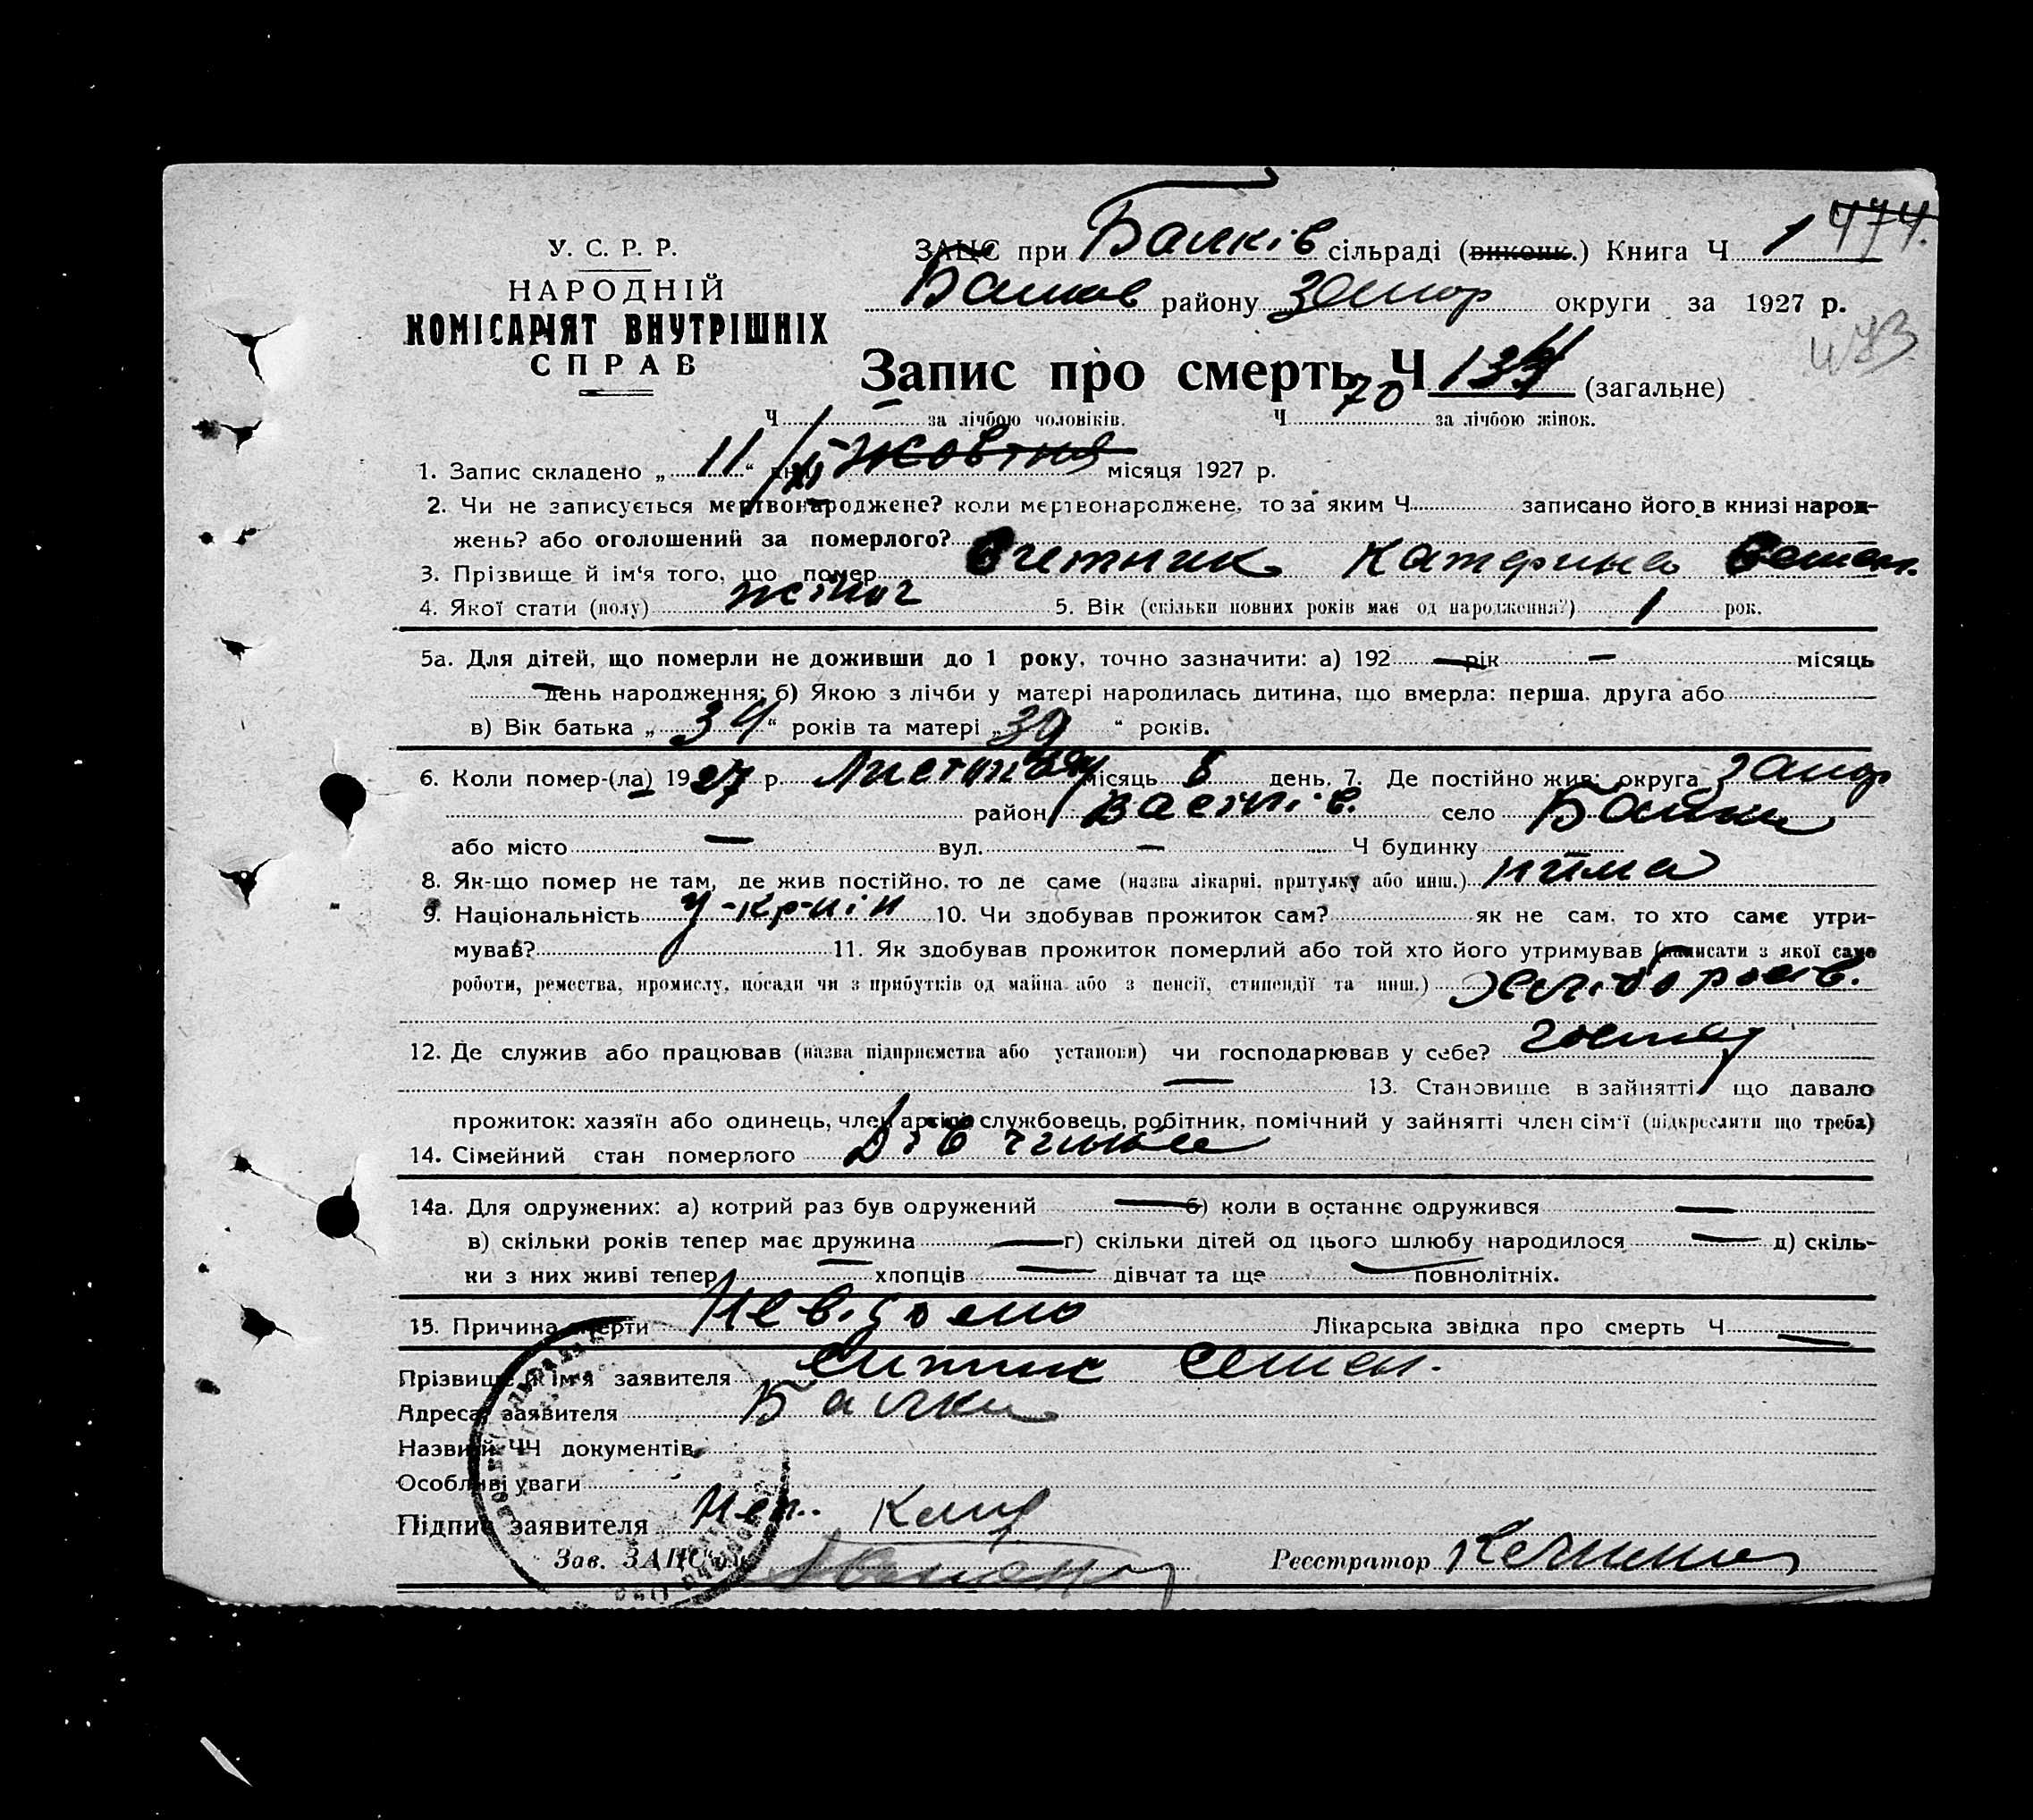 474.
У. С. Р. Р.
НАРОДНІЙ
КОМІСАРІЯТ ВНУТРІШНІХ
СПРАВ
ЗАЦС при Балків сільраді (виконк.) Книга Ч 1
району Запор округи за 1927 р.
Запис про смерть Ч 134 (загальне)
Ч – за лічбою чоловіків. Ч 70 за лічбою жінок.
1. Запис складено „ 11 “ дня жовтня місяця 1927 р.
2. Чи не записується мертвонароджене? коли мертвонароджене, то за яким Ч записано його в книзі народ-
жень? або оголошений за померлого?
3. Прізвище й ім‘я того, що помер Катерина Семен.
4. Якої стати (полу) жіноч 5. Вік (скільки повних років має од народження?) 1 рок.
5а. Для дітей, що померли не доживши до 1 року, точно зазначити: а) 192 — рік — місяць
— день народження; б) Якою з лічби у матері народилась дитина, що вмерла: перша, друга або
в) Вік батька „ 34 “ років та матері „ “ років.
6. Коли помер-(ла) 1927 р. Листопаду місяць день. 7. Де постійно жив: округа Запор
район Василів. село Балки
або місто — вул. — Ч будинку
8. Як-що помер не там, де жив постійно, то де саме (назва лікарні, притулку або инш.)
9. Національність 10. Чи здобував прожиток сам? як не сам, то хто саме утри-
мував? 11. Як здобував прожиток померлий або той хто його утримував (написати з якої саме
роботи, ремества, промислу, посади чи з прибутків од майна або з пенсії, стипендії та инш.) хліборобів.
12. Де служив або працював (назва підприємства або установи) чи господарював у себе?
— 13. Становище в зайнятті, що давало
прожиток: хазяїн або одинець, член артіли службовець, робітник, помічний у зайнятті член сім‘ї (підкреслити що треба)
14. Сімейний стан померлого дівчина
14а. Для одружених: а) котрий раз був одружений — б) коли в останнє одружився —
в) скільки років тепер має дружина — г) скільки дітей од цього шлюбу народилося — д) скіль-
ки з них живі тепер — хлопців — дівчат та ще — повнолітніх.
15. Причина смерти Невідомо Лікарська звідка про смерть Ч —
Прізвище й ім‘я заявителя Семен.
Адреса заявителя Балки
Назви й ЧЧ документів
Особливі уваги
Підпис заявителя
Зав. ЗАЦС‘ом
Реєстратор